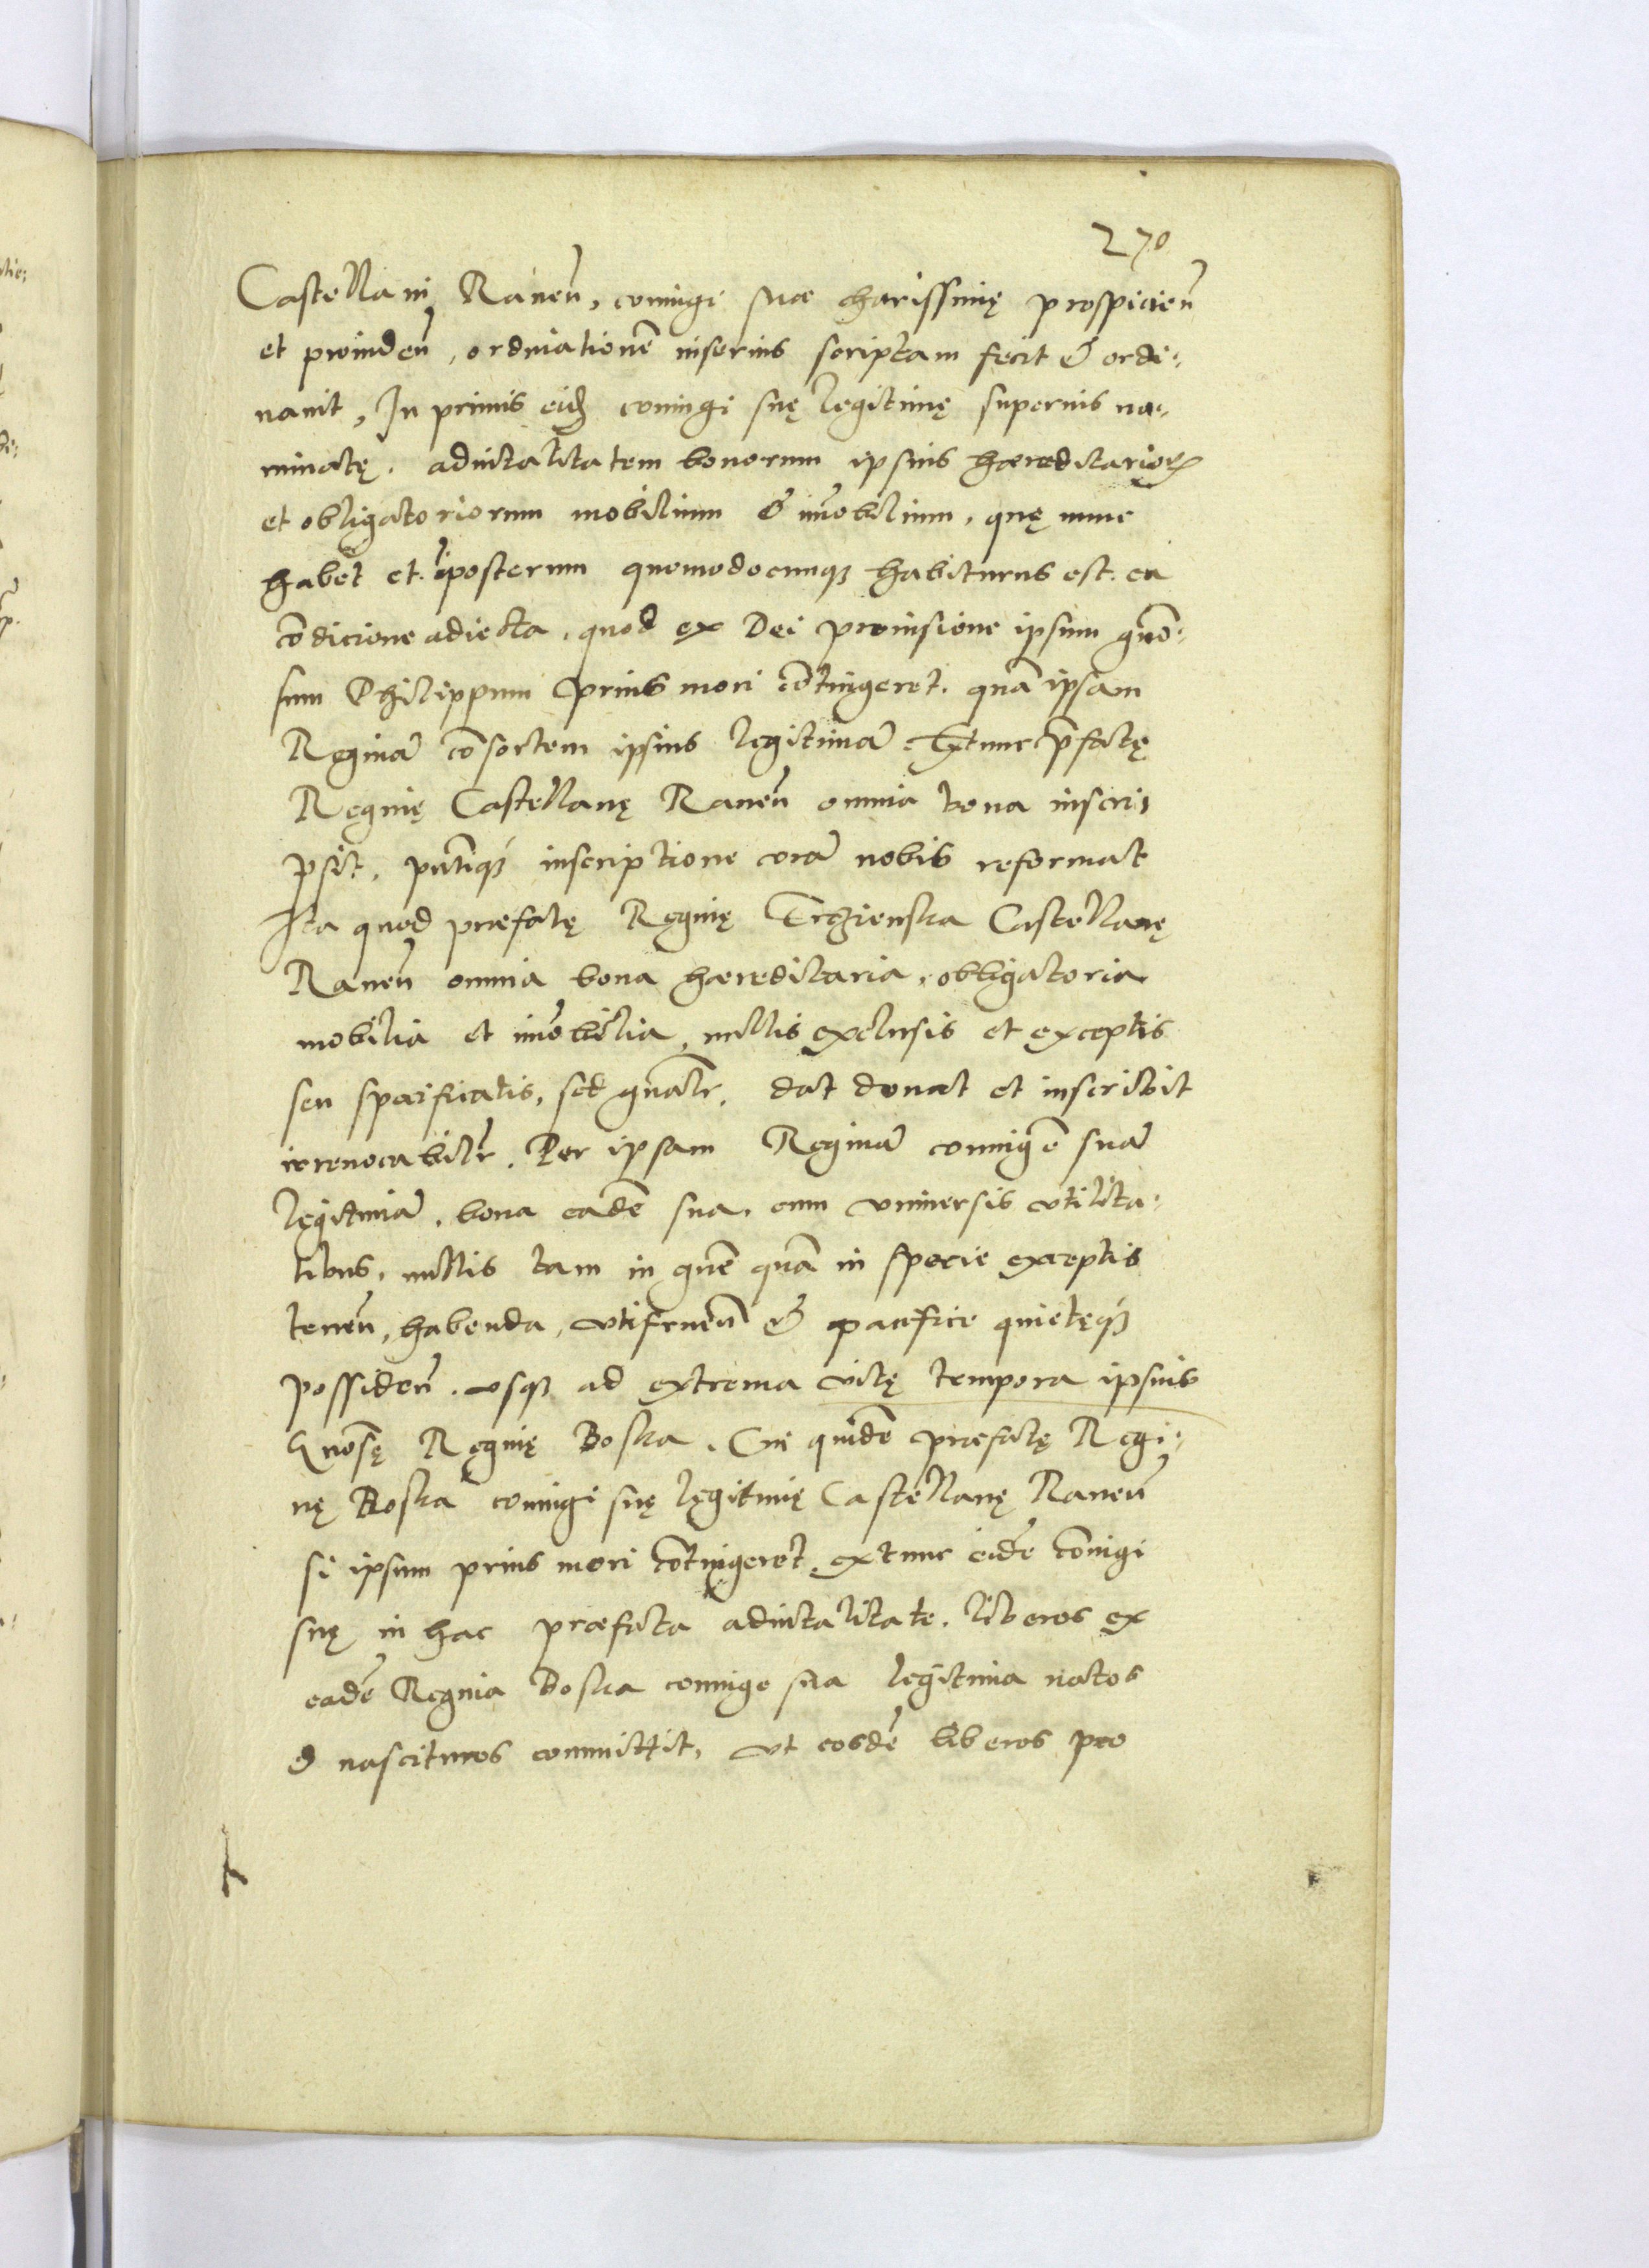 270
Castellani Raneñ, coniugi suae charissimę prospicieñ
et prouideñ, ordinationē inferius scriptam fecit & ordi-
nauit, In primis eidē coniugi suę legitimę superius no-
minatę. aduitalitatem bonorum ipsius haereditariorꝝ
et obligatoriorum mobilium & im̄obilium, quę nunc
habet et īposterum quomodocunqꝫ habiturus est. ea
cōdicione adiecta, quod ex Dei prouisione ipsum gnō-
sum Philippum prius mori cōtingeret. quā ipsam
Reginā cōsortem ipsius legitimā Extunc p̄fatę
Reginę Castellanę Raneñ omnia bona inscri-
psit, pn̄tiqꝫ inscriptione corā nobis reformat
Ita quod praefatę Reginę Erczienska Castellanę
Raneñ omnia bona haereditaria, obligatoria
mobilia et im̄obilia, nullis exclusis et exceptis
seu specificatis, sed gnālr̄. dat donat et inscribit
irreuocabilr̄. Per ipsam Reginā coniugē suā
legitimā. bona eadē sua, cum vniuersis vtilita-
tibus, nullis tam in gn̄e quā in specie exceptis
teneñ, habenda, vtifrueñ & pacifice quietęqꝫ
possideñ. vsqꝫ ad extrema vitę tempora ipsius
Gnōsę Reginę Boska. Cui quidē praefatę Regi-
nę Boska coniugi suę legitimę Castellanę Raneñ
si ipsum prius mori cōtingeret, extunc eidē cōiugi
suę in hac praefata aduitalitate. liberos ex
eadē Regina Boska coniuge sua legitima natos
& nascituros committit, vt eosdē liberos pro